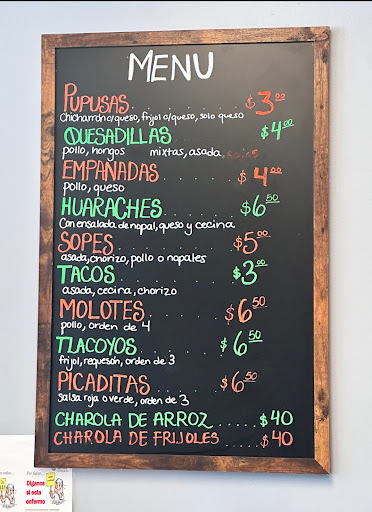 MENU
PUPUSAS $3.00
Chicharrón c/queso, frijol c/queso, solo queso
QUESADILLAS $4.00
pollo, hongos mixtas, asada,
EMPANADAS $4.00
pollo, queso
HUARACHES $6.50
Con ensalada de nopal, queso y cecina
SOPES $5.00
asada, chorizo, pollo o nopales
TACOS $3.00
asada, cecina, chorizo
MOLOTES $6.50
pollo, orden de 4
TLACOYOS $6.50
frijol, requesón, orden de 3
PICADITAS $6.50
salsa roja o verde, orden de 3
CHAROLA DE ARROZ ..... $40
CHAROLA DE FRIJOLES ..... $40
Díganos
si esta
enfermo